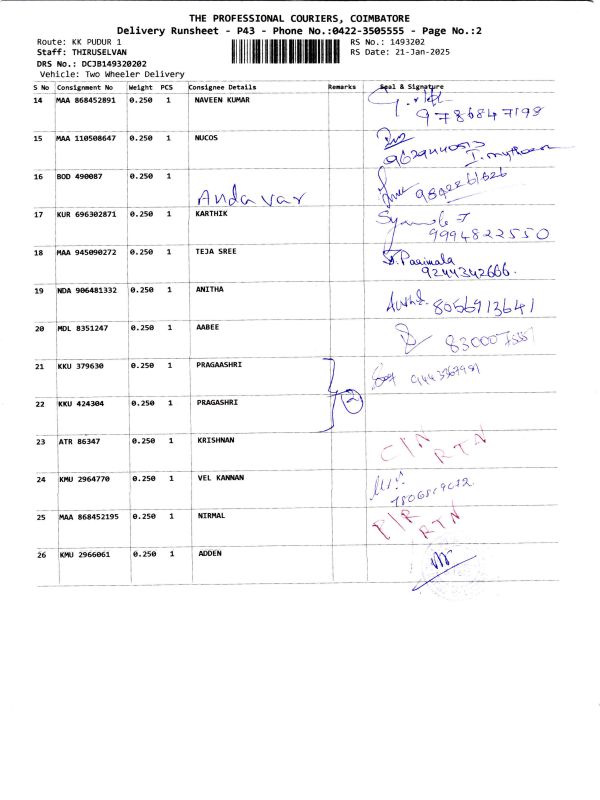 THE PROFESSIONAL COURIERS, COIMBATORE
Delivery Runsheet - P43 - Phone No.:0422-3505555 - Page No.:2
Route: KK PUDUR 1 RS No.: 1493202
Staff: THIRUSELVAN RS Date: 21-Jan-2025
DRS No.: DCJB149320202
Vehicle: Two Wheeler Delivery
S No Consignment No Weight PCS Consignee Details Remarks Seal & Signature
14 MAA 868452891 0.250 1 NAVEEN KUMAR
9786847198
15 MAA 110508647 0.250 1 NUCOS
16 BOD 490087 0.250 1
Andavar
17 KUR 696302871 0.250 1 KARTHIK
9994822550
18 MAA 945090272 0.250 1 TEJA SREE S. Parimala
9244342666.
19 NDA 906481332 0.250 1 ANITHA
8056913641
20 MDL 8351247 0.250 1 AABEE
21 KKU 379630 0.250 1 PRAGAASHRI
2
22 KKU 424304 0.250 1 PRAGASHRI
23 ATR 86347 0.250 1 KRISHNAN C/N RTN
24 KMU 2964770 0.250 1 VEL KANNAN
25 MAA 868452195 0.250 1 NIRMAL P/R RTN
26 KMU 2966061 0.250 1 ADDEN